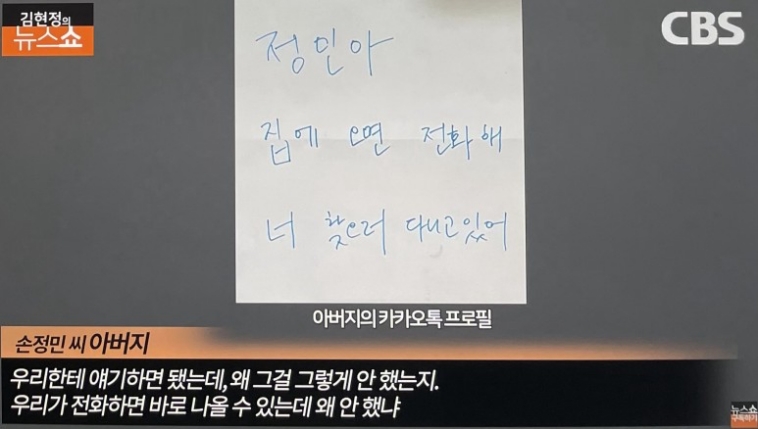 김현정의
뉴스쇼
CBS
정민아
집에 오면 전화해
너 찾으러 다니고있어
아버지의 카카오톡 프로필
손정민 씨 아버지
우리한테 얘기하면 됐는데, 왜 그걸 그렇게 안 했는지.
우리가 전화하면 바로 나올 수 있는데 왜 안 했냐
뉴스쇼
구독하기